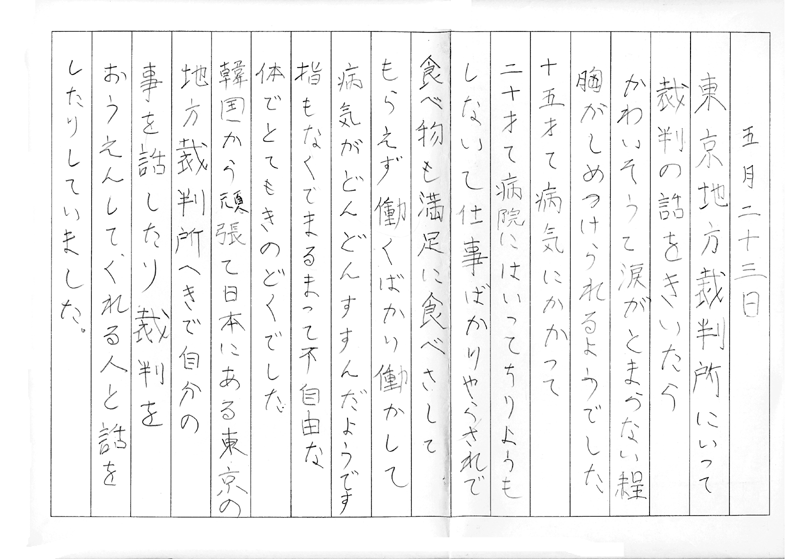 五月二十三日
東京地方裁判所にいって
裁判の話をきいたら
かわいそうて涙がとまらない程
胸がしめつけられるようでした
十五才て病気にかかって
二十才て病院にはいってちりようも
しないて仕事ばかりやらされで
食べ物も満足に食べさして
もらえず働くばかり働かして
病気がどんどんすすんだようです
指もなくてまるまって不自由な
体でとてもきのどくでした
韓国から頑張て日本にある東京の
地方裁判所へきで自分の
事を話したり裁判を
おうえんしてくれる人と話を
したりしていました。